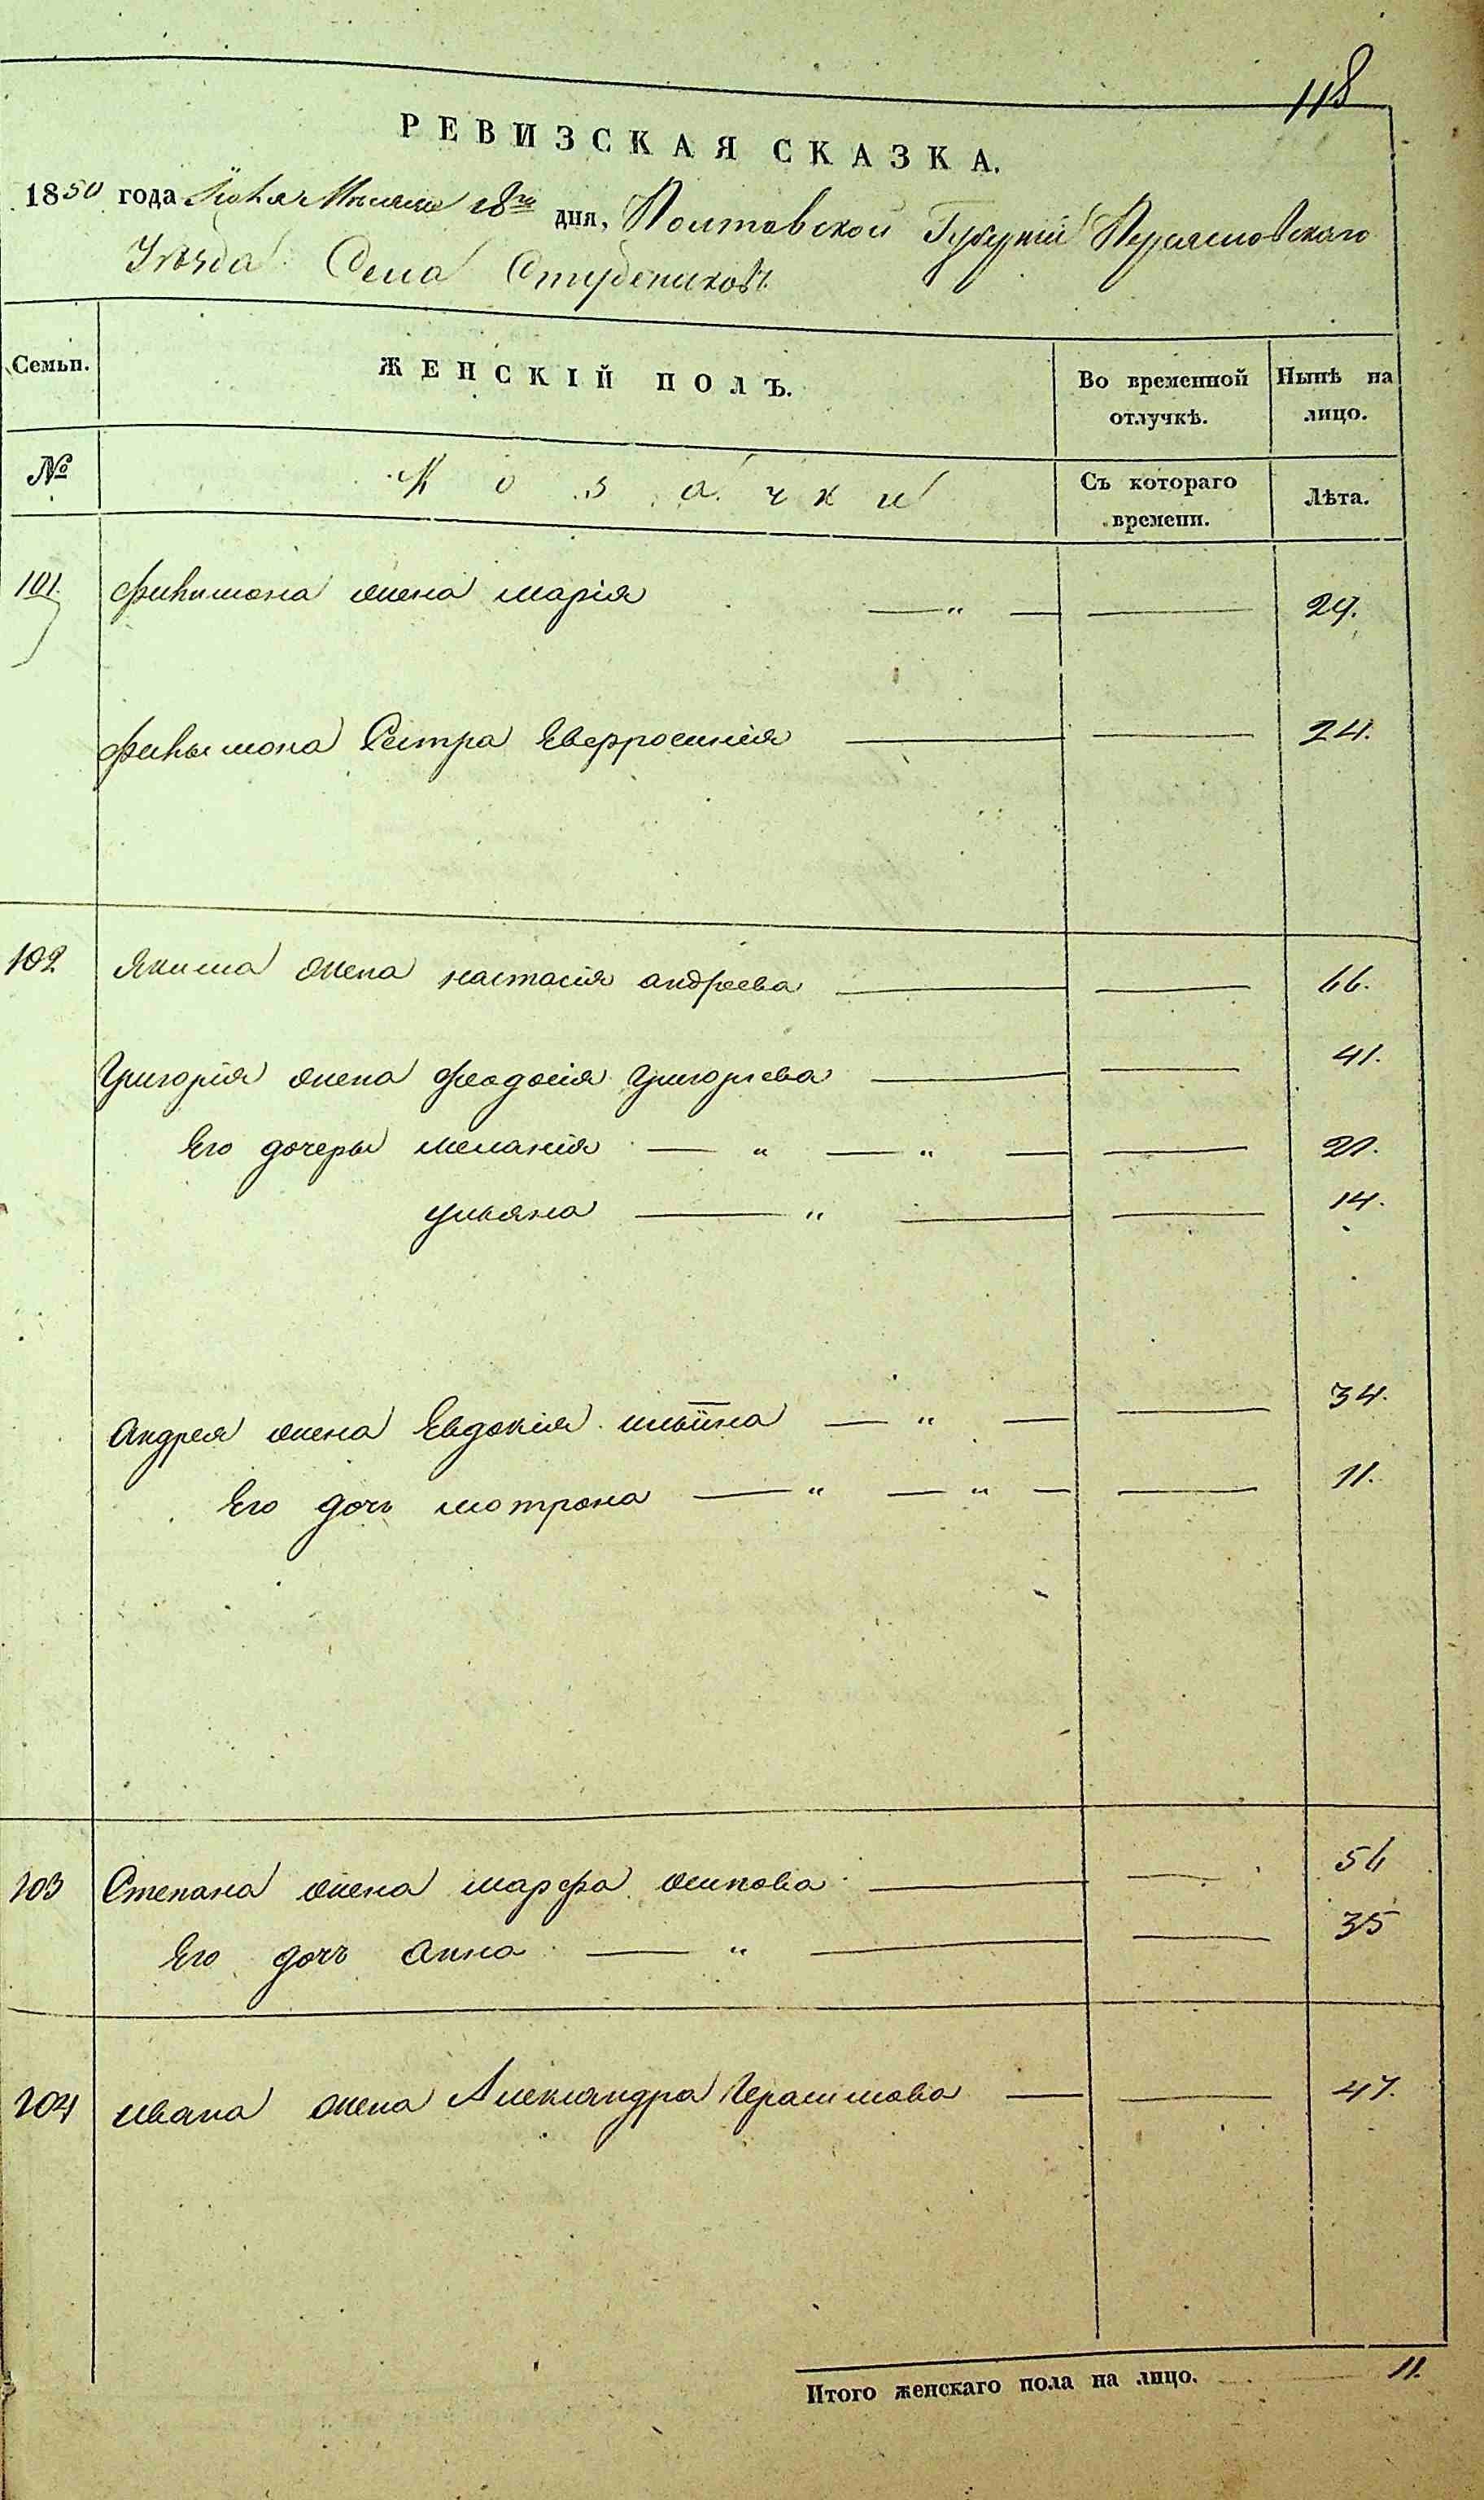 118
РЕВИЗСКАЯ СКАЗКА.
1850 года Июня Месяца 18го дня, Полтавской Губерніи Переясловскаго
Уезда Села Студениковъ
Семьи. ЖЕНСКІЙ ПОЛЪ. Во временной отлучкѣ. Нынѣ на лицо.
№ Козачки Съ котораго времени. Лѣта.
101. Филимона жена марія — " — — 29.
Филымона Сестра Евфросинія — — 24.
102 Якима жена настасія андреева — — 66.
Григорія жена феодосія григорьева — — 41.
Его дочеры меланія — " — " — — 21.
ульяна — " — — 14.
Андрея жена Евдокія ильіина — " — — 34.
Его дочь мотрона — " — " — — 11.
103 Степана жена марфа осипова — — 56
Его дочь анна — " — — 35
104 ивана жена Александра Герасимова — — 47.
Итого женскаго пола на лицо. 11.